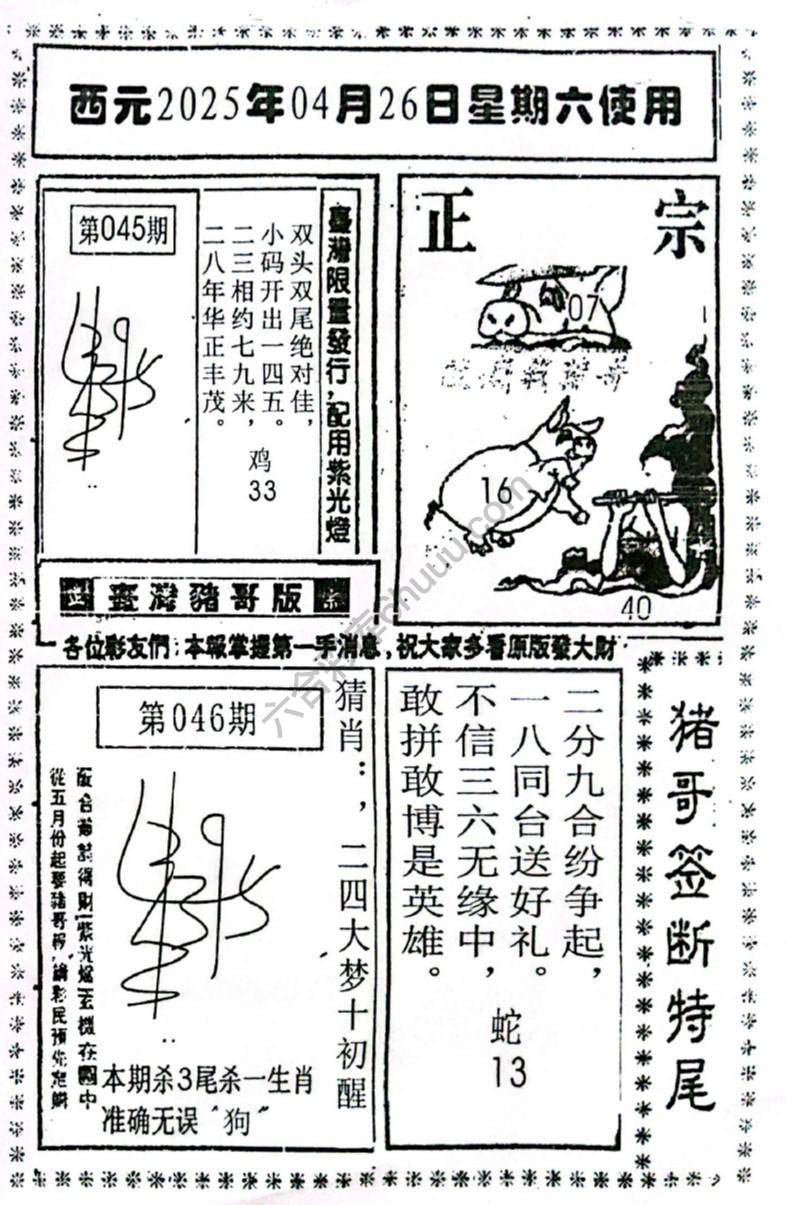 西元2025年04月26日星期六使用
第045期
双头双尾绝对佳，
小码开出一四五。
二三相约七九来，
二八年华正丰茂。
鸡
33
臺灣限量發行，配用紫光燈
正宗
07
16
40
臺灣豬哥版
各位彩友們：本報掌握第一手消息，祝大家多看原版發大財
第046期
猜肖：，二四大梦十初醒
本期杀3尾杀一生肖
准确无误“狗”
二分九合纷争起，
一八同台送好礼。
不信三六无缘中，
敢拼敢博是英雄。
蛇
13
猪哥签断特尾